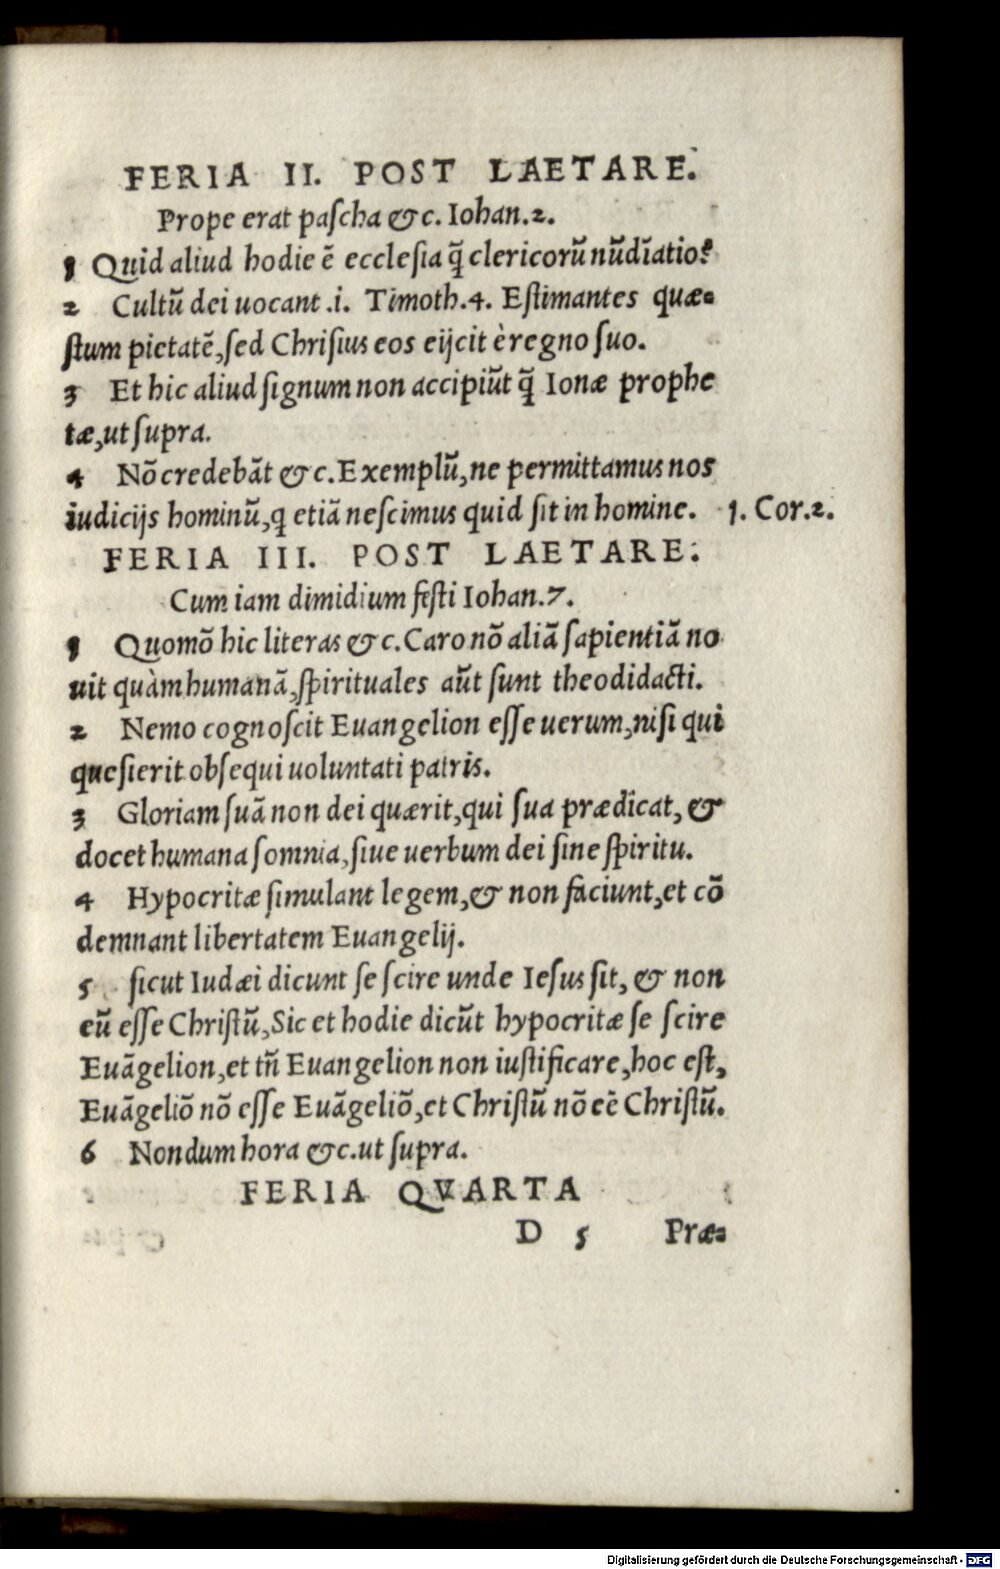 FERIA II. POST LAETARE.
Prope erat paſcha &c. Iohan.2.
1 Quid aliud hodie ē eccleſia q̃ clericorũ nũdĩatio?
2 Cultũ dei uocant .i. Timoth.4. Eſtimantes quæ=
ſtum pietatẽ, ſed Chriſtus eos eijcit è regno ſuo.
3 Et hic aliud ſignum non accipiũt q̃ Ionæ prophe
tæ, ut ſupra.
4 Nõ credebãt &c. Exemplũ, ne permittamus nos
iudicijs hominũ, q etiã neſcimus quid ſit in homine. 1. Cor.2.
FERIA III. POST LAETARE.
Cum iam dimidium feſti Iohan.7.
1 Quomõ hic literas &c. Caro nõ aliã ſapientiã no
uit quàm humanã, ſpirituales aũt ſunt theodidacti.
2 Nemo cognoſcit Euangelion eſſe uerum, niſi qui
queſierit obſequi uoluntati patris.
3 Gloriam ſuã non dei quærit, qui ſua prædicat, &
docet humana ſomnia, ſiue uerbum dei ſine ſpiritu.
4 Hypocritæ ſimulant legem, & non faciunt, et cõ
demnant libertatem Euangelij.
5 ſicut Iudæi dicunt ſe ſcire unde Ieſus ſit, & non
eũ eſſe Chriſtũ, Sic et hodie dicũt hypocritæ ſe ſcire
Euãgelion, et tñ Euangelion non iuſtificare, hoc eſt,
Euãgeliõ nõ eſſe Euãgeliõ, et Chriſtũ nõ eẽ Chriſtũ.
6 Nondum hora &c. ut ſupra.
FERIA QVARTA
D 5 Præ=
Digitalisierung gefördert durch die Deutsche Forschungsgemeinschaft - DFG